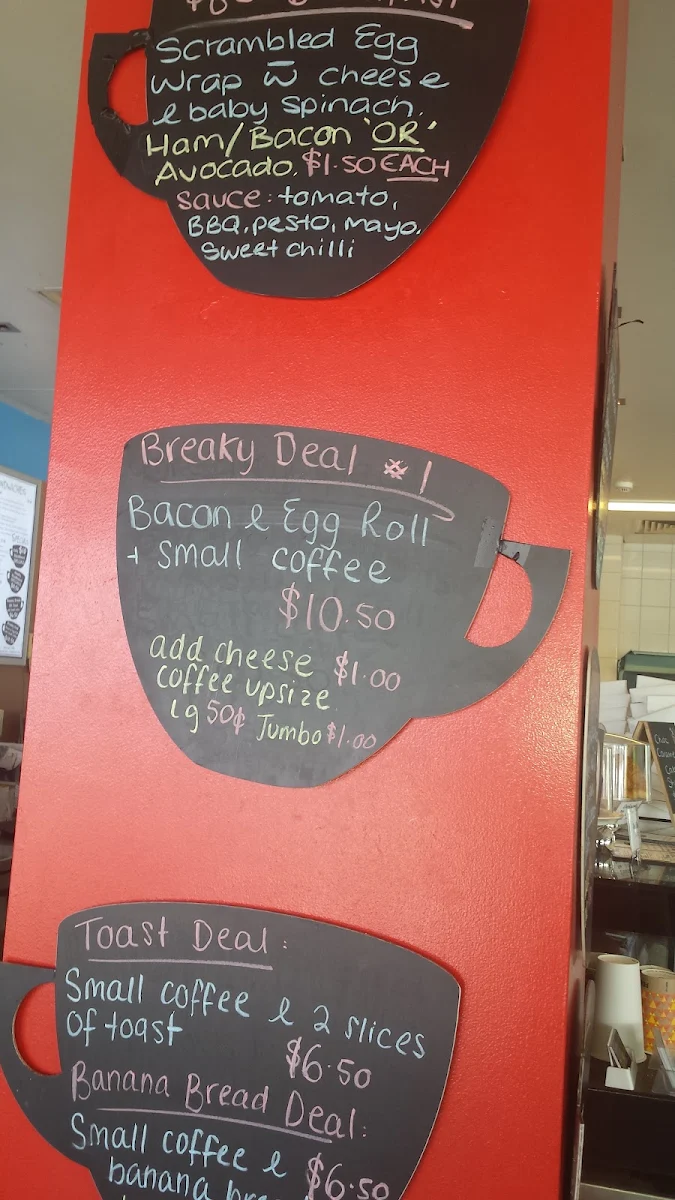 Scrambled Egg
Wrap w̄ cheese
& baby spinach.
Ham/Bacon 'OR'
Avocado. $1.50 EACH
Sauce: tomato,
BBQ, pesto, mayo,
Sweet chilli
Breaky Deal #1
Bacon & Egg Roll
+ small coffee
$10.50
add cheese $1.00
coffee upsize
lg 50¢ Jumbo $1.00
Toast Deal:
Small coffee & 2 slices
Of toast
$6.50
Banana Bread Deal:
Small coffee &
banana $6.50